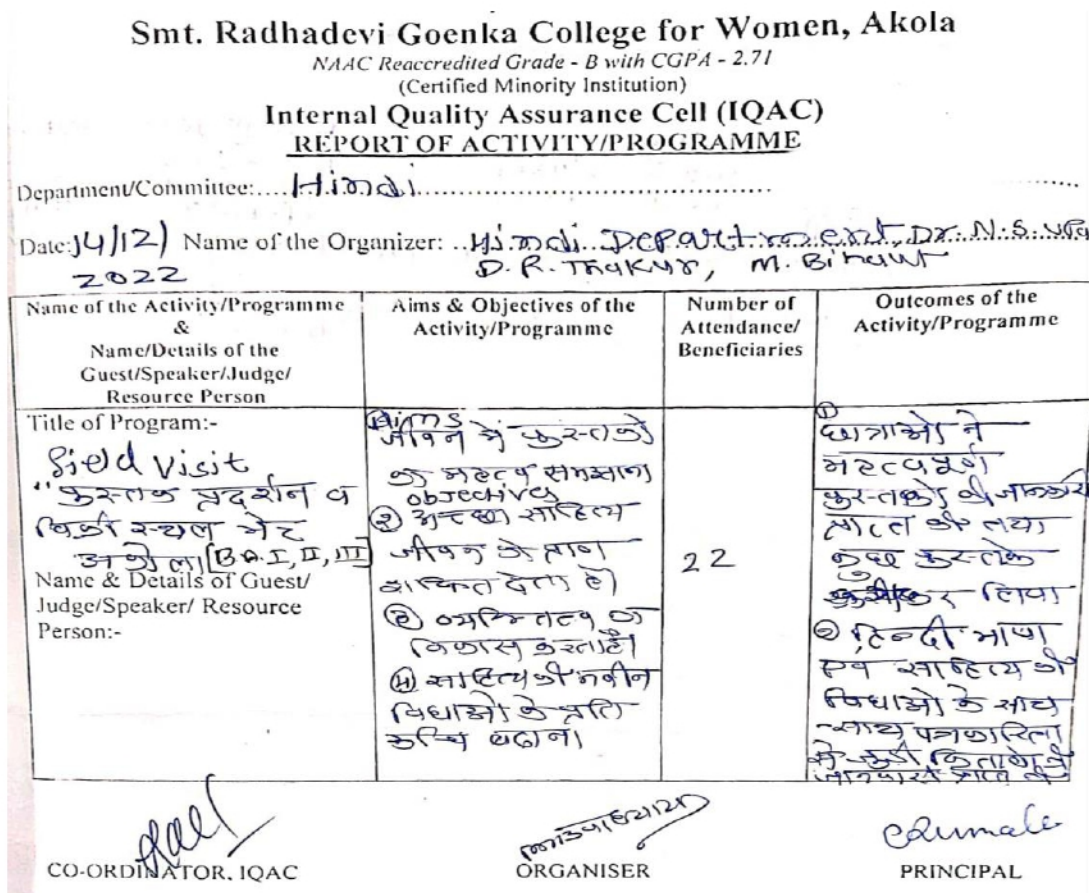 Smt. Radhadevi Goenka College for Women, Akola
NAAC Reaccredited Grade - B with CGPA - 2.71
(Certified Minority Institution)
Internal Quality Assurance Cell (IQAC)
REPORT OF ACTIVITY/PROGRAMME
Department/Committee:....Hindi
Date:14/12/ Name of the Organizer: ..Hindi Department, Dr. N.S.
2022 D. R. Thakur, M.
Name of the Activity/Programme
&
Name/Details of the
Guest/Speaker/Judge/
Resource Person
Aims & Objectives of the
Activity/Programme
Number of
Attendance/
Beneficiaries
Outcomes of the
Activity/Programme
Title of Program:-
Field Visit
"पुस्तक प्रदर्शन व
विक्री स्थल भेट
अकोला [B.A. I, II, III]
Name & Details of Guest/
Judge/Speaker/ Resource
Person:-
Aims
जीवन में पुस्तकों
का महत्व समझाना
objectives
② अच्छा साहित्य
जीवन को प्राण
शक्ति देता है।
③ व्यक्तित्व का
विकास करता है।
④ साहित्य की नवीन
विधाओं के प्रति
रुचि बढाना।
22
①
छात्राओं ने
महत्वपूर्ण
पुस्तकों की जानकारी
प्राप्त की तथा
कुछ पुस्तके
लिया
② हिन्दी भाषा
एवं साहित्य की
विधाओं के साथ
-साथ पत्रकारिता
से जुडी किताबों की
जानकारी प्राप्त की
CO-ORDINATOR, IQAC
ORGANISER
PRINCIPAL